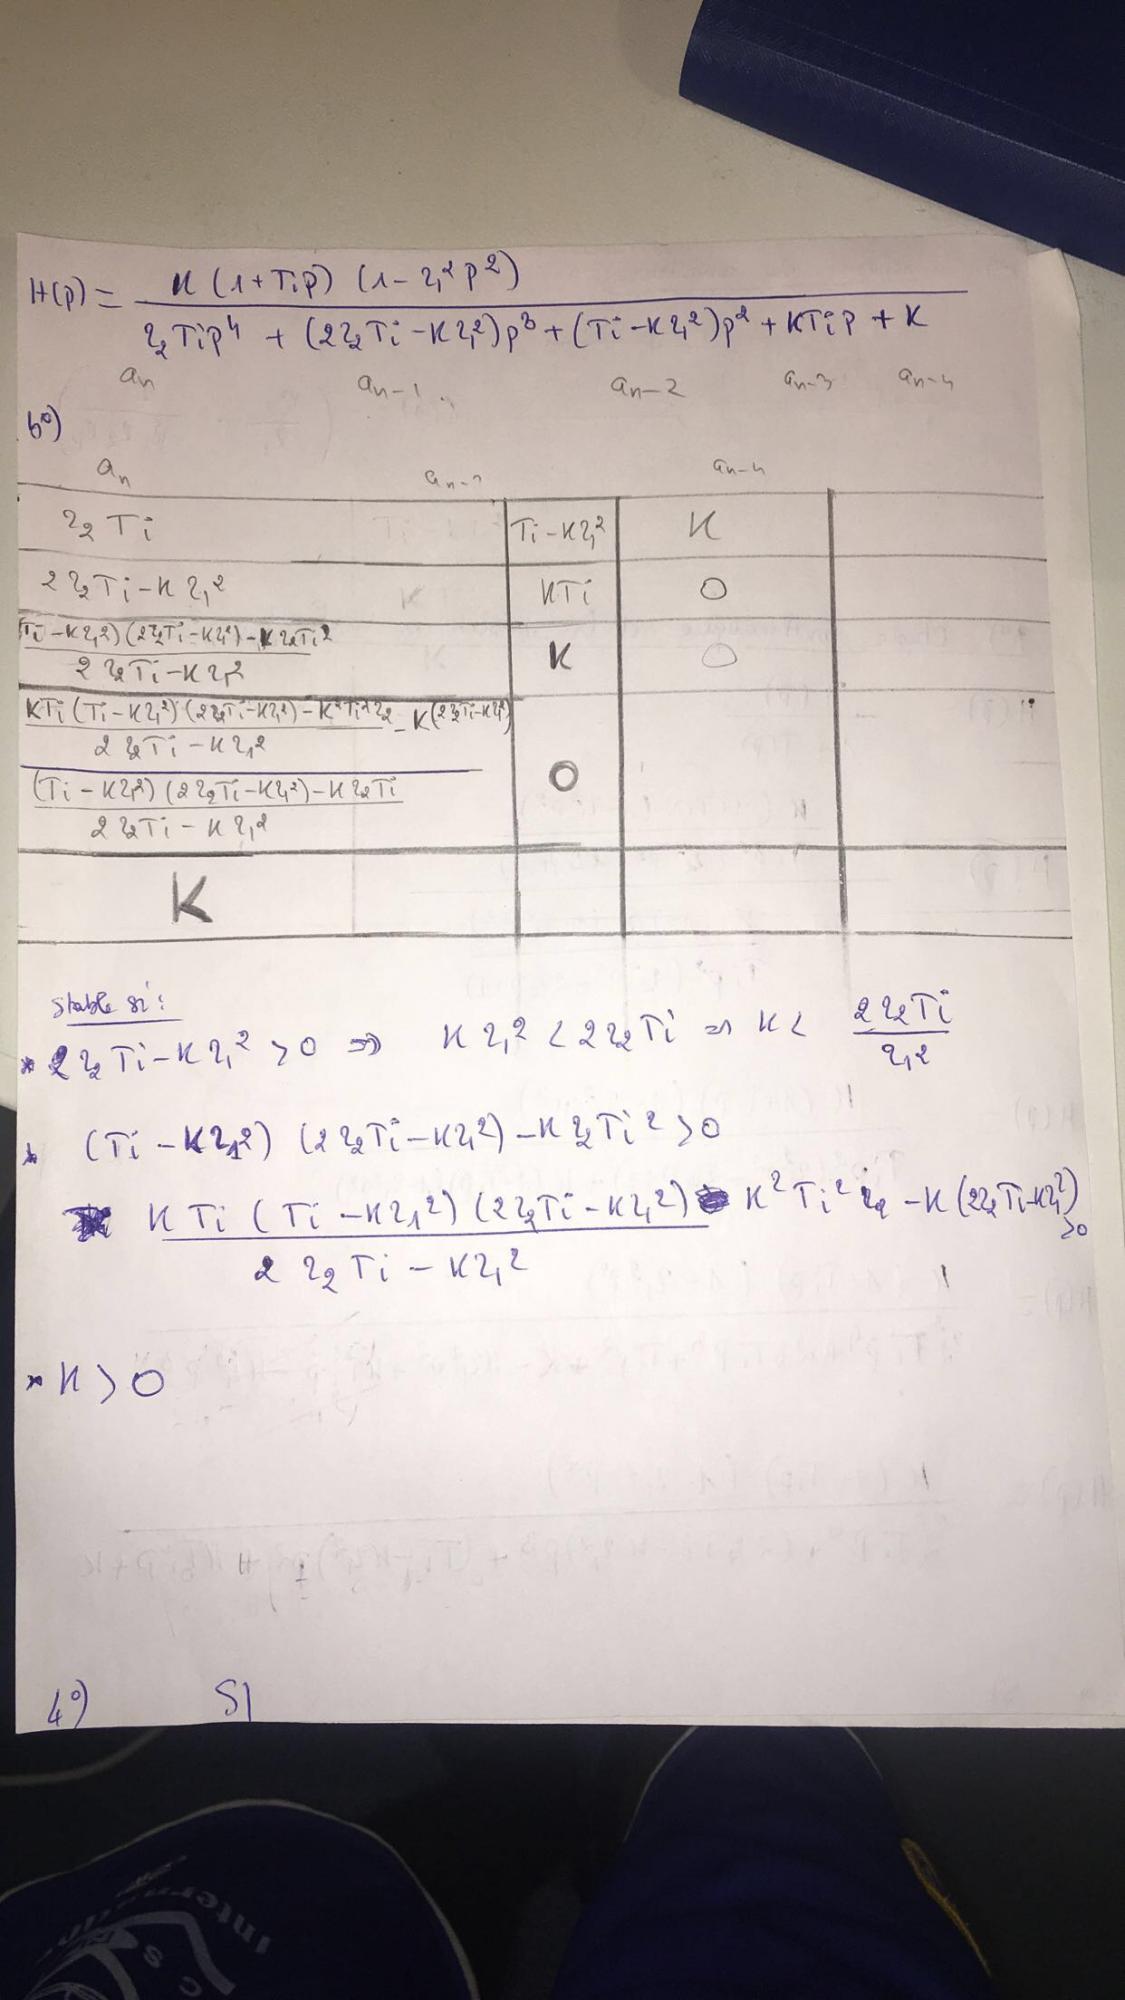 H(p) = K (1+Tip) (1- τ1² p²)
τ2 Ti p⁴ + (2τ2Ti - Kτ1²)p³ + (Ti - Kτ1²)p² + KTip + K
an an-1 an-2 an-3 an-4
b°)
an an-2 an-4
τ2 Ti Ti - Kτ1² K
2τ2Ti - Kτ1² KTi 0
(Ti - Kτ1²)(2τ2Ti - Kτ1²) - Kτ2Ti²
2τ2Ti - Kτ1² K 0
KTi (Ti - Kτ1²)(2τ2Ti - Kτ1²) - K²Ti²τ2 - K(2τ2Ti - Kτ1²)
2τ2Ti - Kτ1²
(Ti - Kτ1²)(2τ2Ti - Kτ1²) - Kτ2Ti 0
2τ2Ti - Kτ1²
K
Stable si :
* 2τ2Ti - Kτ1² > 0 => Kτ1² < 2τ2Ti => K < 2τ2Ti
τ1²
* (Ti - Kτ1²) (2τ2Ti - Kτ1²) - Kτ2Ti² > 0
* KTi (Ti - Kτ1²)(2τ2Ti - Kτ1²) - K²Ti²τ2 - K(2τ2Ti - Kτ1²) > 0
2τ2Ti - Kτ1²
* K > 0
4°) SI